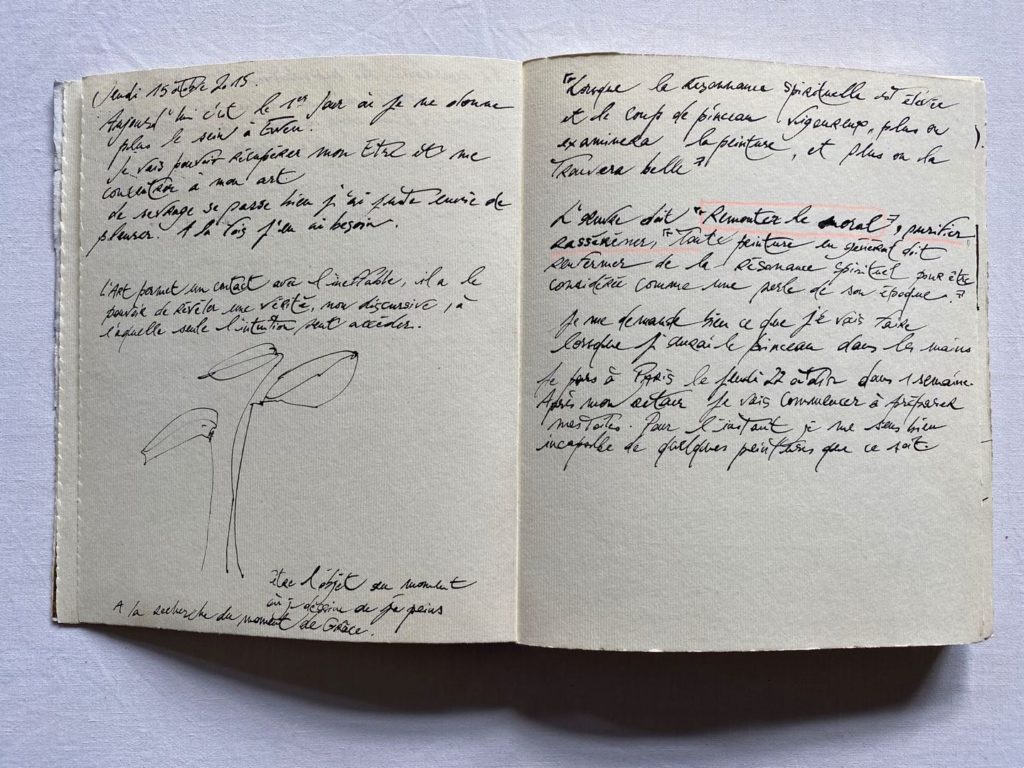 Jeudi 15 octbre 2015.
Aujourd'hui c'est le 1er jour où je ne donne
plus le sein à Ewen.
Je vais pouvoir récupérer mon Etre et me
concentrer à mon art
Le sevrage se passe bien j'ai juste envie de
pleurer. A la fois j'en ai besoin.
L'Art permet un contact avec l'ineffable, il a le
pouvoir de révéler une vérité, non discursive, à
laquelle seule l'intuition peut accéder.
être l'objet au moment
où je dessine
A la recherche du moment de Grâce.
"Lorsque la Résonnance spirituelle est élevée
et le coup de pinceau vigoureux, plus on
examinera la peinture, et plus on la
trouvera belle"
L'œuvre doit "Remonter le moral", purifier,
rasséréner, "Toute peinture en général doit
renfermer de la résonance spirituel pour être
considérée comme une perle de son époque."
Je me demande bien ce que je vais faire
lorsque j'aurai le pinceau dans les mains
Je pars à PARIS le jeudi 22 dans 1 semaine.
Après mon retour je vais commencer à préparer
mes toiles. Pour l'instant je me sens bien
incapable de quelques peintures que ce soit.